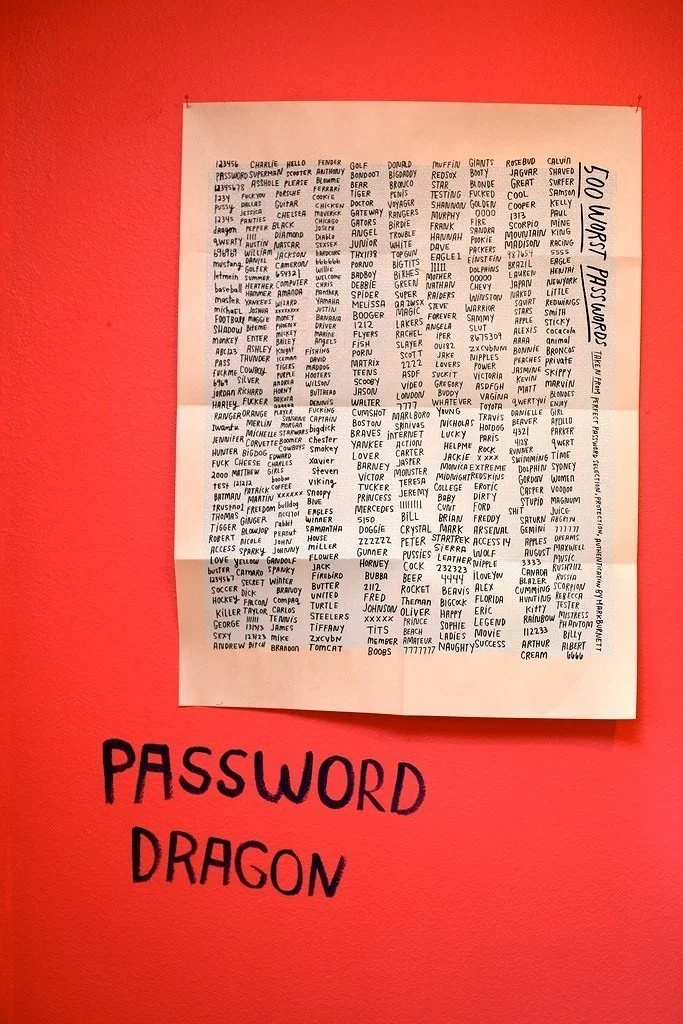 500 WORST PASSWORDS
TAKEN FROM PERFECT PASSWORD SELECTION, PROTECTION, AUTHENTICATION BY MARK BURNETT
123456 CHARLIE HELLO FENDER GOLF DONALD MUFFIN GIANTS ROSEBUD CALVIN
PASSWORD SUPERMAN SCOOTER ANTHONY BONDOO7 BIGDADDY REDSOX BOOTY JAGUAR SHAVED
12345678 ASSHOLE PLEASE BLOWME BEAR BRONCO STAR BLONDE GREAT SURFER
1234 FUCKYOU PORSCHE FERRARI TIGER PENIS TESTING FUCKED COOL SAMSON
PUSSY DALLAS GUITAR COOKIE DOCTOR VOYAGER SHANNON GOLDEN COOPER KELLY
12345 JESSICA CHELSEA CHICKEN GATEWAY RANGERS MURPHY 0000 1313 PAUL
dragon PANTIES BLACK MAVERICK GATORS BIRDIE FRANK FIRE SCORPIO MINE
qWEATY PEPPER DIAMOND CHICAGO ANGEL TROUBLE HANNAH SANDRA MOUNTAIN KING
696969 1111 NASCAR JOSEPH JUNIOR WHITE DAVE POOKIE MADISON RACING
mustang AUSTIN JACKSON DIABLO THX1138 TOPGUN EAGLE1 PACKERS 987654 5555
letmein WILLIAM CAMERON SEXSEX PORNO BIGTITS 11111 EINSTEIN BRAZIL EAGLE
baseball DANIEL 654321 HARDCORE BADBOY BITCHES MOTHER DOLPHINS LAUREN HENTAI
master GOLFER COMPUTER 666666 DEBBIE GREEN NATHAN 00000 JAPAN NEWYORK
michael SUMMER AMANDA WILLIE SPIDER SUPER RAIDERS CHEVY NAKED LITTLE
FOOTBALL HEATHER WIZARD WELCOME MELISSA QAZWSX STEVE WINSTON SQUIRT REDWINGS
SHADOW HAMMER XXXXXXXX CHRIS BOOGER MAGIC FOREVER WARRIOR STARS SMITH
MONKEY YANKEES MONEY PANTHER 1212 LAKERS ANGELA SAMMY APPLE STICKY
ABC123 JOSHUA PHOENIX YAMAHA FLYERS RACHEL VIPER SLUT ALEXIS COCACOLA
PASS MAGGIE MICKEY JUSTIN FISH SLAYER OU812 8675309 AAAA animal
FUCKME BITEME BAILEY BANANA PORN SCOTT JAKE ZXCVBNM BONNIE BRONCOS
6969 ENTER KNIGHT DRIVER MATRIX 2222 LOVERS NIPPLES PEACHES private
JORDAN ASHLEY ICEMAN MARINE TEENS ASDF SUCKIT POWER JASMINE SKIPPY
HARLEY THUNDER TIGERS ANGELS SCOOBY VIDEO GREGORY VICTORIA KEVIN MARVIN
RANGER COWBOY PURPLE FISHING JASON LONDON BUDDY ASDFGH MATT BLONDES
IWANTU SILVER ANDREA DAVID WALTER 7777 WHATEVER VAGINA QWERTYUI ENJOY
JENNIFER RICHARD HORNY MADDOG CUMSHOT MARLBORO YOUNG TOYOTA DANIELLE GIRL
HUNTER FUCKER DAKOTA HOOTERS BOSTON SRINIVAS NICHOLAS TRAVIS BEAVER APOLLO
FUCK ORANGE PLAYER WILSON BRAVES INTERNET LUCKY HOTDOG 4321 PARKER
2000 MERLIN SUNSHINE BUTTHEAD YANKEE ACTION HELPME PARIS 4128 QWERT
TEST MICHELLE MORGAN DENNIS LOVER CARTER JACKIE ROCK RUNNER TIME
BATMAN CORVETTE STARWARS FUCKING BARNEY JASPER MONICA XXXX SWIMMING SYDNEY
TRUSTNO1 BIGDOG BOOMER CAPTAIN VICTOR MONSTER MIDNIGHT EXTREME DOLPHIN WOMEN
THOMAS CHEESE COWBOYS bigdick TUCKER TERESA COLLEGE REDSKINS GORDON VOODOO
TIGGER MATTHEW EDWARD chester PRINCESS JEREMY BABY EROTIC CASPER MAGNUM
ROBERT 121212 CHARLES smokey MERCEDES 11111111 CUNT DIRTY STUPID JUICE
ACCESS PATRICK GIRLS xavier 5150 BILL BRIAN FORD SHIT ABGRTYU
LOVE MARTIN BOOBOO steven DOGGIE CRYSTAL MARK FREDDY SATURN 777777
BUSTER FREEDOM COFFEE viking ZZZZZZ PETER STARTREK ARSENAL GEMINI DREAMS
1234567 GINGER XXXXXX SNOOPY GUNNER PUSSIES SIERRA ACCESS14 APPLES MAXWELL
SOCCER BLOWJOB BULLDOG BLUE HORNEY COCK LEATHER WOLF AUGUST MUSIC
HOCKEY NICOLE NCC1701 EAGLES BUBBA BEER 232323 NIPPLE 3333 RUSH2112
KILLER SPARKY RABBIT WINNER 2112 ROCKET 4444 ILOVEYOU CANADA RUSSIA
GEORGE YELLOW PEANUT SAMANTHA FRED THEMAN BEAVIS ALEX BLAZER SCORPION
SEXY CAMARO JOHN HOUSE JOHNSON OLIVER BIGCOCK FLORIDA CUMMING REBECCA
ANDREW SECRET JOHNNY MILLER XXXXX PRINCE HAPPY ERIC HUNTING TESTER
DICK GANDOLF FLOWER TITS BEACH SOPHIE LEGEND KITTY MISTRESS
FALCON SPANKY JACK MEMBER AMATEUR LADIES MOVIE RAINBOW PHANTOM
TAYLOR WINTER FIREBIRD BOOBS 7777777 NAUGHTY SUCCESS 112233 BILLY
111111 BRANDY BUTTER ARTHUR ALBERT
131313 COMPAQ UNITED CREAM 6666
123123 CARLOS TURTLE
BITCH TENNIS STEELERS
JAMES TIFFANY
MIKE ZXCVBN
BRANDON TOMCAT
PASSWORD
DRAGON